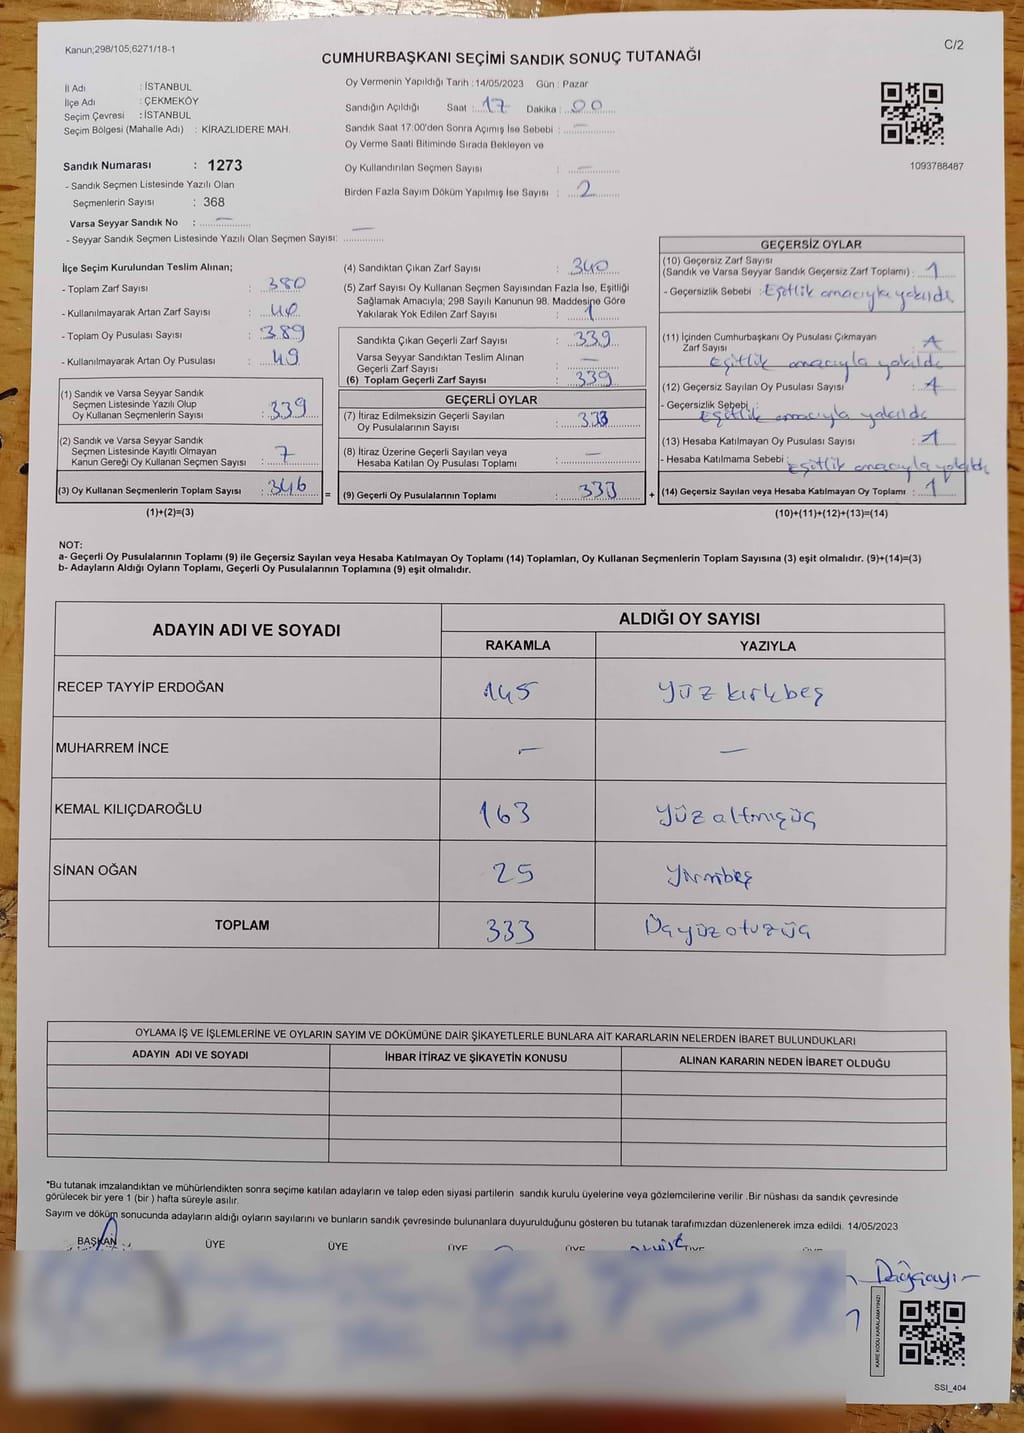 Kanun;298/105;6271/18-1
C/2
CUMHURBAŞKANI SEÇİMİ SANDIK SONUÇ TUTANAĞI
İl Adı : İSTANBUL
İlçe Adı : ÇEKMEKÖY
Seçim Çevresi : İSTANBUL
Seçim Bölgesi (Mahalle Adı) : KİRAZLIDERE MAH.
Sandık Numarası : 1273
- Sandık Seçmen Listesinde Yazılı Olan
Seçmenlerin Sayısı : 368
Varsa Seyyar Sandık No : —
- Seyyar Sandık Seçmen Listesinde Yazılı Olan Seçmen Sayısı: —
Oy Vermenin Yapıldığı Tarih : 14/05/2023 Gün : Pazar
Sandığın Açıldığı Saat : 17 Dakika : 00
Sandık Saat 17:00'den Sonra Açımış İse Sebebi : —
Oy Verme Saati Bitiminde Sırada Bekleyen ve
Oy Kullandırılan Seçmen Sayısı : —
Birden Fazla Sayım Döküm Yapılmış İse Sayısı : 2
1093788487
İlçe Seçim Kurulundan Teslim Alınan;
- Toplam Zarf Sayısı : 380
- Kullanılmayarak Artan Zarf Sayısı : 40
- Toplam Oy Pusulası Sayısı : 389
- Kullanılmayarak Artan Oy Pusulası : 49
(1) Sandık ve Varsa Seyyar Sandık
Seçmen Listesinde Yazılı Olup
Oy Kullanan Seçmenlerin Sayısı : 339
(2) Sandık ve Varsa Seyyar Sandık
Seçmen Listesinde Kayıtlı Olmayan
Kanun Gereği Oy Kullanan Seçmen Sayısı : 7
(3) Oy Kullanan Seçmenlerin Toplam Sayısı : 346 =
(1)+(2)=(3)
(4) Sandıktan Çıkan Zarf Sayısı : 340
(5) Zarf Sayısı Oy Kullanan Seçmen Sayısından Fazla İse, Eşitliği
Sağlamak Amacıyla; 298 Sayılı Kanunun 98. Maddesine Göre
Yakılarak Yok Edilen Zarf Sayısı : 1
Sandıkta Çıkan Geçerli Zarf Sayısı : 339
Varsa Seyyar Sandıktan Teslim Alınan
Geçerli Zarf Sayısı : —
(6) Toplam Geçerli Zarf Sayısı : 339
GEÇERLİ OYLAR
(7) İtiraz Edilmeksizin Geçerli Sayılan
Oy Pusulalarının Sayısı : 333
(8) İtiraz Üzerine Geçerli Sayılan veya
Hesaba Katılan Oy Pusulası Toplamı : —
(9) Geçerli Oy Pusulalarının Toplamı : 333 +
GEÇERSİZ OYLAR
(10) Geçersiz Zarf Sayısı
(Sandık ve Varsa Seyyar Sandık Geçersiz Zarf Toplamı) : 1
- Geçersizlik Sebebi : Eşitlik amacıyla yakıldı
(11) İçinden Cumhurbaşkanı Oy Pusulası Çıkmayan
Zarf Sayısı :
Eşitlik amacıyla yakıldı
(12) Geçersiz Sayılan Oy Pusulası Sayısı :
- Geçersizlik Sebebi :
Eşitlik amacıyla yakıldı
(13) Hesaba Katılmayan Oy Pusulası Sayısı : 1
- Hesaba Katılmama Sebebi : Eşitlik amacıyla yakıldı
(14) Geçersiz Sayılan veya Hesaba Katılmayan Oy Toplamı : 1
(10)+(11)+(12)+(13)=(14)
NOT:
a- Geçerli Oy Pusulalarının Toplamı (9) ile Geçersiz Sayılan veya Hesaba Katılmayan Oy Toplamı (14) Toplamları, Oy Kullanan Seçmenlerin Toplam Sayısına (3) eşit olmalıdır. (9)+(14)=(3)
b- Adayların Aldığı Oyların Toplamı, Geçerli Oy Pusulalarının Toplamına (9) eşit olmalıdır.
ADAYIN ADI VE SOYADI
ALDIĞI OY SAYISI
RAKAMLA YAZIYLA
RECEP TAYYİP ERDOĞAN 145 Yüz kırkbeş
MUHARREM İNCE — —
KEMAL KILIÇDAROĞLU 163 Yüz altmışüç
SİNAN OĞAN 25 Yirmibeş
TOPLAM 333 Üçyüzotuzüç
OYLAMA İŞ VE İŞLEMLERİNE VE OYLARIN SAYIM VE DÖKÜMÜNE DAİR ŞİKAYETLERLE BUNLARA AİT KARARLARIN NELERDEN İBARET BULUNDUKLARI
ADAYIN ADI VE SOYADI İHBAR İTİRAZ VE ŞİKAYETİN KONUSU ALINAN KARARIN NEDEN İBARET OLDUĞU
*Bu tutanak imzalandıktan ve mühürlendikten sonra seçime katılan adayların ve talep eden siyasi partilerin sandık kurulu üyelerine veya gözlemcilerine verilir .Bir nüshası da sandık çevresinde
görülecek bir yere 1 (bir ) hafta süreyle asılır.
Sayım ve döküm sonucunda adayların aldığı oyların sayılarını ve bunların sandık çevresinde bulunanlara duyurulduğunu gösteren bu tutanak tarafımızdan düzenlenerek imza edildi. 14/05/2023
BAŞKAN ÜYE ÜYE ÜYE ÜYE ÜYE ÜYE
KARE KODU KARALAMAYINIZ!
SSI_404